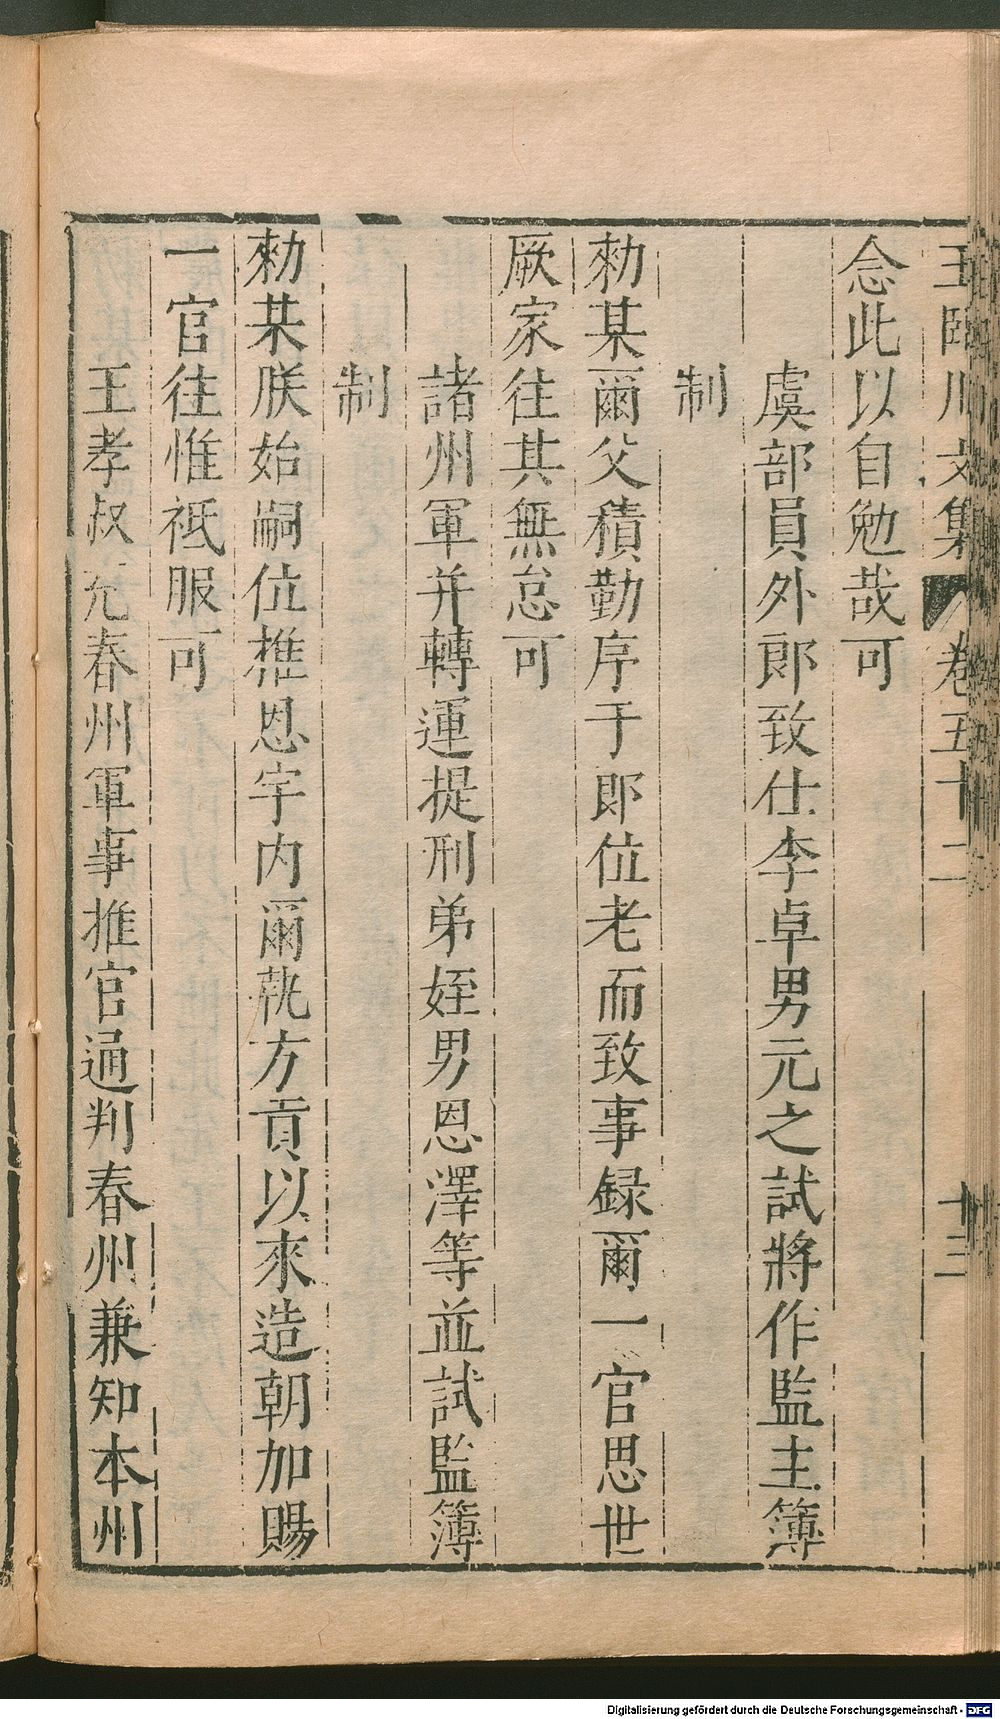 王臨川文集 卷五十二 十三
念此以自勉哉可
虞部員外郎致仕李卓男元之試將作監主簿
制
勑某爾父積勤序于郎位老而致事録爾一官思世
厥家往其無怠可
諸州軍并轉運提刑弟姪男恩澤等並試監簿
制
勑某朕始嗣位推恩宇内爾執方貢以來造朝加賜
一官往惟祗服可
王孝叔充春州軍事推官通判春州兼知本州
Digitalisierung gefördert durch die Deutsche Forschungsgemeinschaft - DFG